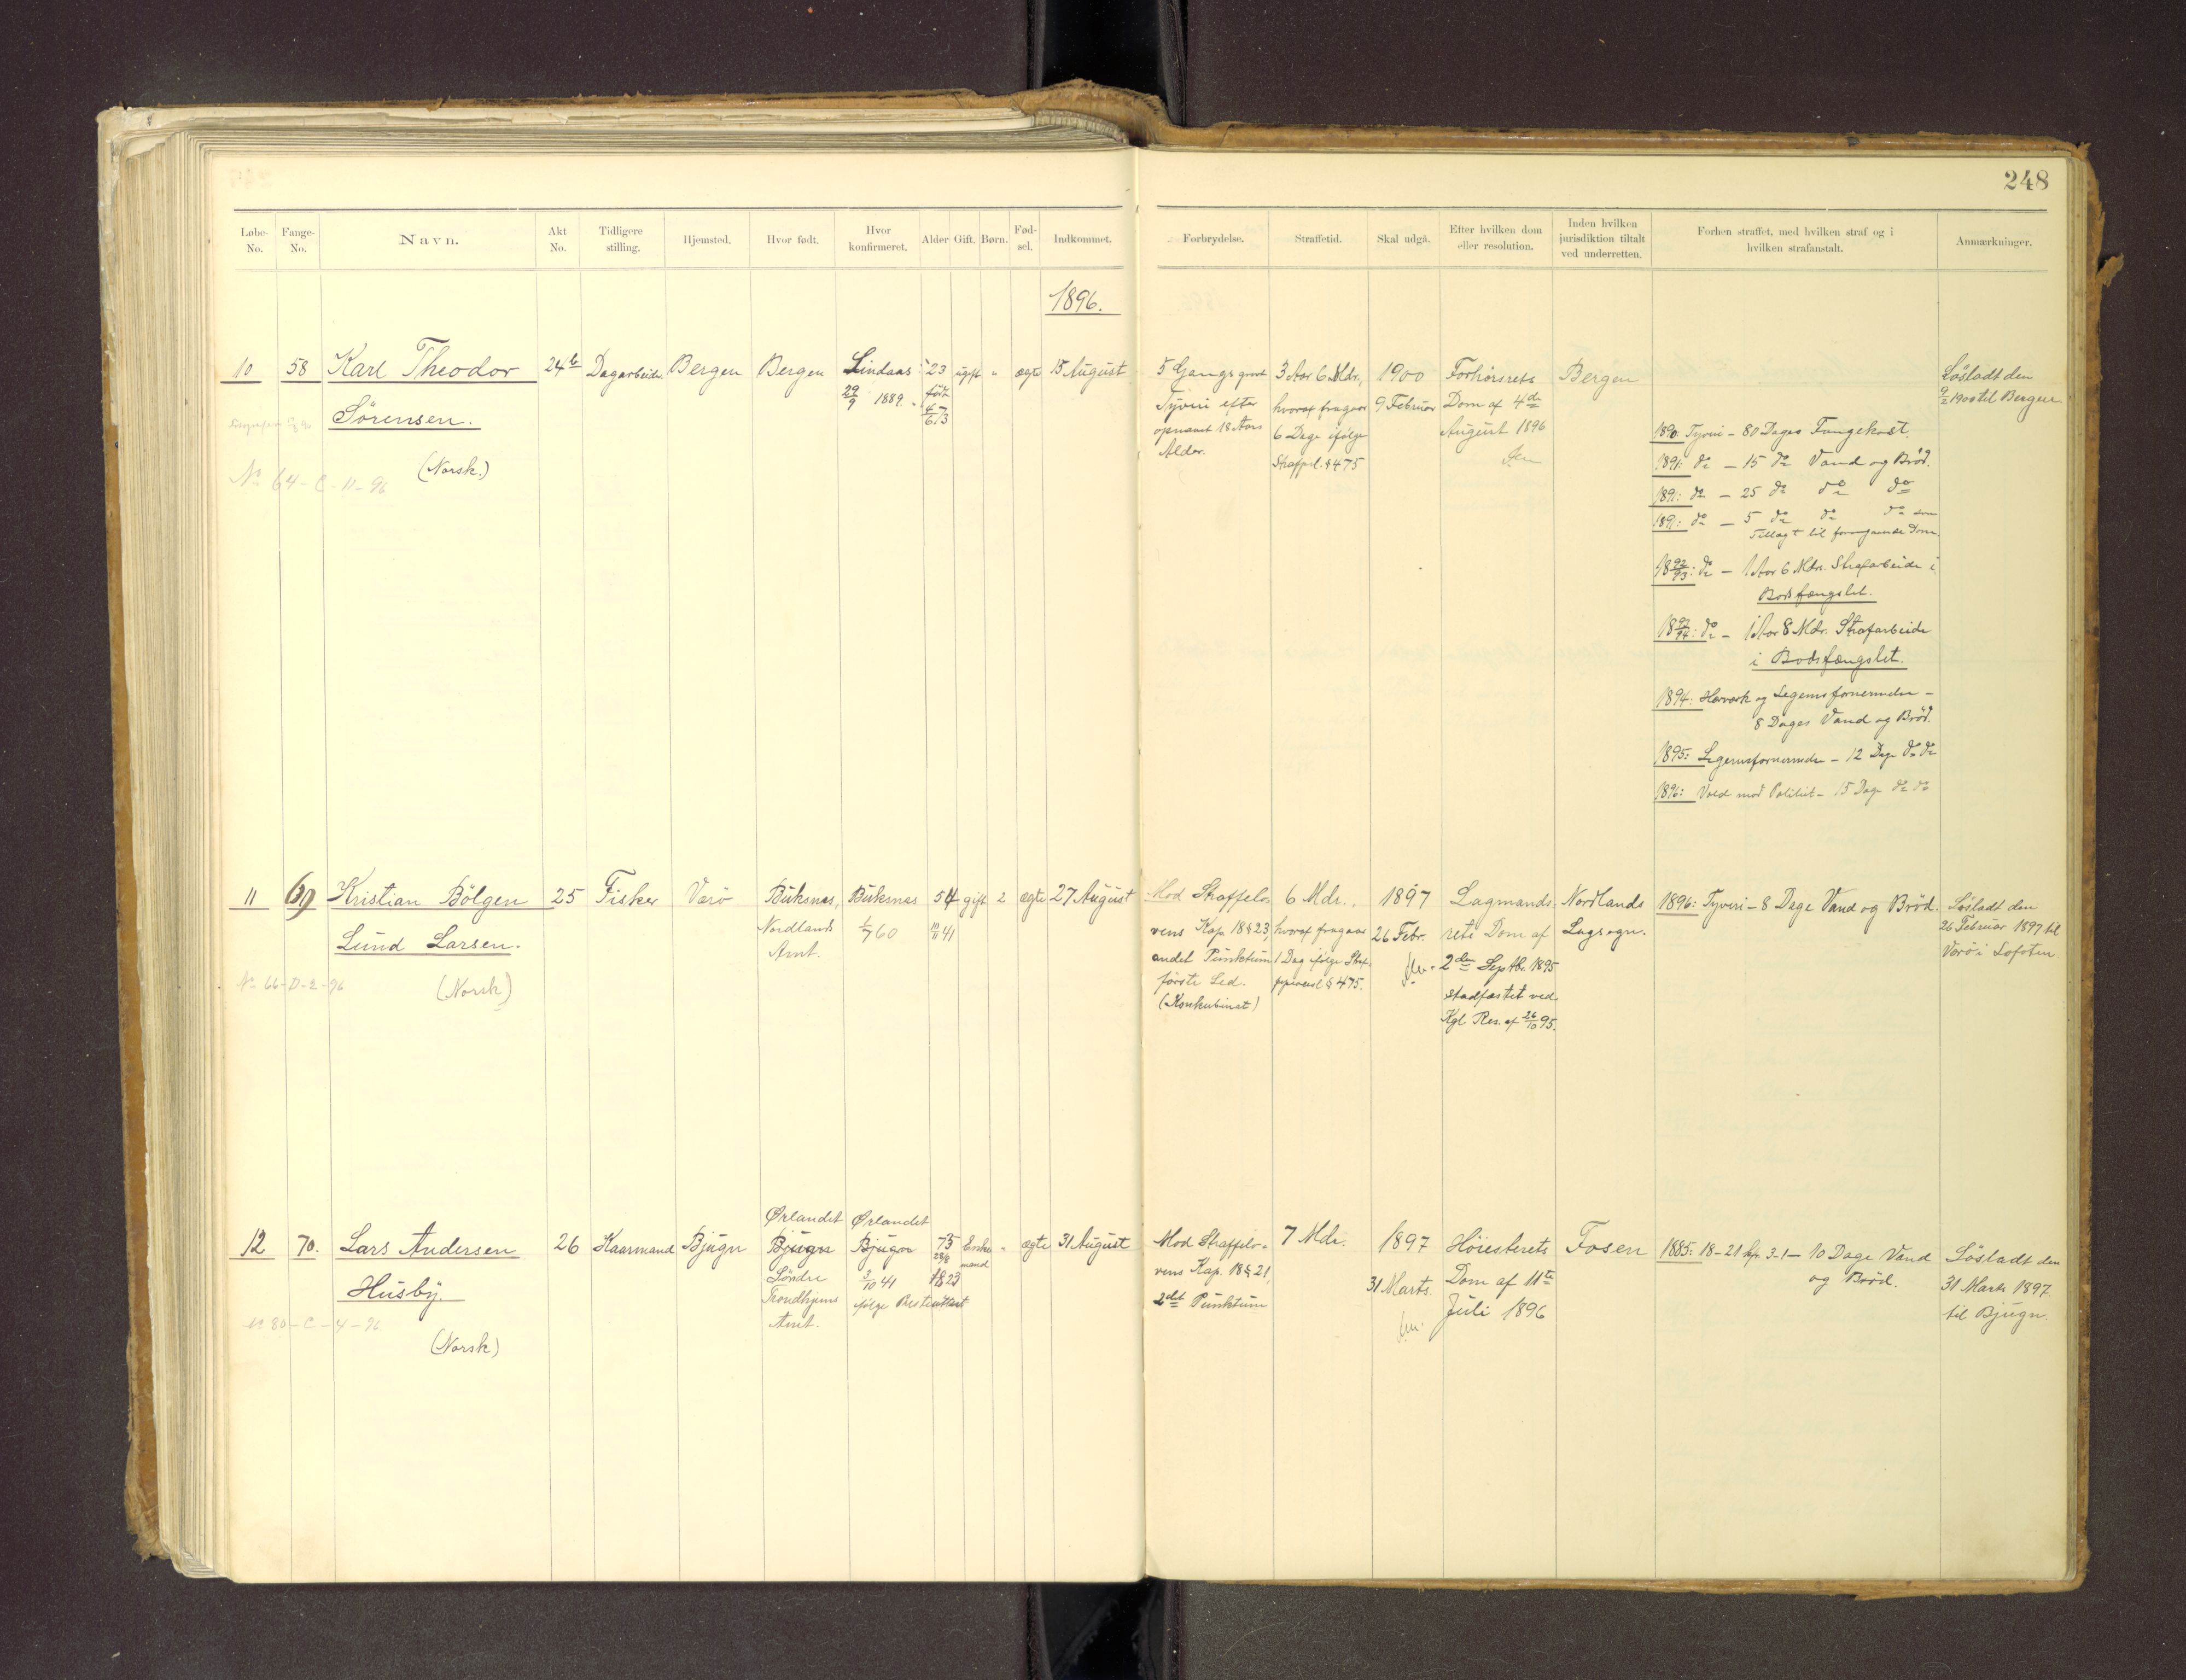 248
Løbe-No. Fange-No. Navn. Akt No. Tidligere stilling. Hjemsted. Hvor født. Hvor konfirmeret. Alder Gift. Børn. Fødsel. Indkommet.
Forbrydelse. Straffetid. Skal udgå. Efter hvilken dom eller resolution. Inden hvilken jurisdiktion tiltalt ved underretten. Forhen straffet, med hvilken straf og i hvilken strafanstalt. Anmærkninger.
1896.
10 58 Karl Theodor
Sörensen.
(Norsk.)
No 64-C-11-96
24 b
Dagarbeider
Bergen
Bergen
Lindaas
29/9 1889.
23
født
4/6 73
ugift
"
ægte
15 August
5 Gangs grovt
Tyveri efter
opnaaet 18 Aars
Alder.
3 Aar 6 Mdr.,
hvoraf fragaar
6 Dage ifølge
Strafprl. § 475
1900
9 Februar
Forhörsrets
Dom af 4de
August 1896
Bergen
1890. Tyveri - 80 Dages Fangekost.
1891: do - 15 do Vand og Bröd.
1891: do - 25 do do do
1891: do - 5 do do do som
Tillæg til foregaaende Dom.
1892/93: do - 1 Aar 6 Mdrs. Strafarbeide i
Bodsfængslet.
1893/94: do - 1 Aar 8 Mdr. Strafarbeide
i Bodsfængslet.
1894: Hærværk og Legemsfornermelse -
8 Dages Vand og Bröd.
1895: Legemsfornermelse - 12 Dage do do
1896: Vold mod Politiet - 15 Dage do do
Lösladt den
9/2 1900 til Bergen
11 69 Kristian Bölgen
Lund Larsen.
(Norsk)
No 66-D-2-96
25
Fisker
Værö
Buksnes,
Nordlands
Amt.
Buksnes
1/7 60
54
10/11 41
gift
2
ægte
27 August
Mod Straffelo-
vens Kap. 18 § 23,
andet Punktum
første Led.
(Konkubinat)
6 Mdr.,
hvoraf fragaar
1 Dag ifølge Straf-
§ 475.
1897
26 Febr.
Lagmands-
rets Dom af
2den Septbr. 1895
stadfæstet ved
Kgl. Res. af 26/10 95.
Nordlands
Lagsogn.
1896: Tyveri - 8 Dage Vand og Bröd.
Lösladt den
26 Februar 1897 til
Værö i Lofoten
12 70. Lars Andersen
Husby.
(Norsk)
No 80-C-4-96
26
Kaarmand
Bjugn
Ørlandet
Bjugn
Söndre
Trondhjems
Amt.
Ørlandet
Bjugn
3/10 41
ifølge Præsteattest
73
28/8
1823
Enke-
mand
"
ægte
31 August
Mod Straffelo-
vens Kap. 18 § 21,
2det Punktum
7 Mdr.
1897
31 Marts.
Höiesterets
Dom af 11te
Juli 1896
Fosen
1885: 18-21 kfr. 3-1 - 10 Dage Vand
og Bröd.
Lösladt den
31 Marts 1897
til Bjugn.